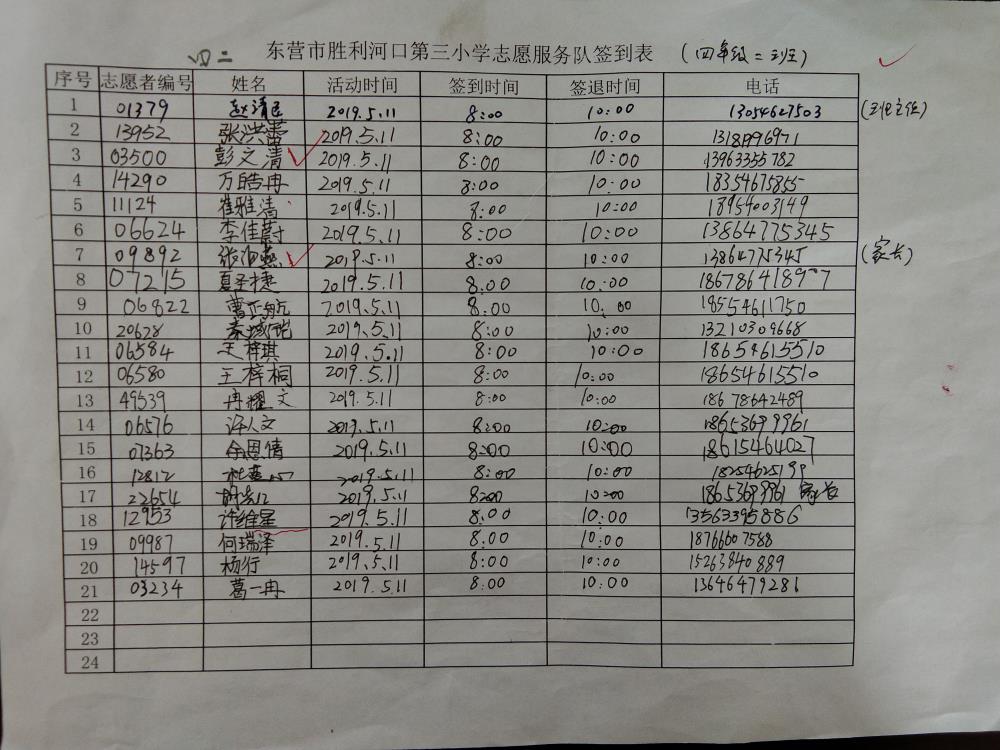 四二 东营市胜利河口第三小学志愿服务队签到表 (四年级二班)
序号 志愿者编号 姓名 活动时间 签到时间 签退时间 电话
1 01379 2019.5.11 8:00 10:00 13054627503 (班主任)
2 13952 张洪蕾 2019.5.11 8:00 10:00
3 03500 彭文清 2019.5.11 8:00 10:00 13963355782
4 14290 万皓冉 2019.5.11 8:00 10:00 18354675855
5 11124 崔雅清 2019.5.11 8:00 10:00 18954003149
6 06624 李佳蔚 2019.5.11 8:00 10:00 13864775345
7 09892 2019.5.11 8:00 10:00 13864775345 (家长)
8 07215 夏圣捷 2019.5.11 8:00 10:00 18678641897
9 06822 曹正航 2019.5.11 8:00 10:00 18554611750
10 20628 2019.5.11 8:00 10:00 13210309668
11 06584 王梓琪 2019.5.11 8:00 10:00 18654615510
12 06580 王梓桐 2019.5.11 8:00 10:00 18654615510
13 49539 冉耀文 2019.5.11 8:00 10:00 18678642489
14 06576 许人文 2019.5.11 8:00 10:00 18653699961
15 07363 余恩倩 2019.5.11 8:00 10:00 18615464027
16 12812 2019.5.11 8:00 10:00
17 22654 2019.5.11 8:00 10:00 家长
18 12953 许维星 2019.5.11 8:00 10:00 13563395886
19 09987 何瑞泽 2019.5.11 8:00 10:00 18766007588
20 14597 杨行 2019.5.11 8:00 10:00 15263840889
21 03234 葛一冉 2019.5.11 8:00 10:00 13646479281
22
23
24